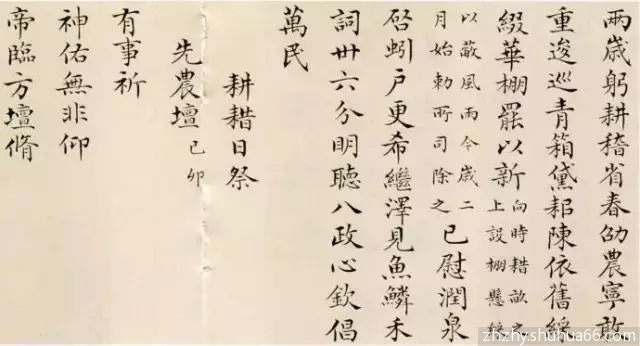 兩歲躬耕稽省春劭農寧敢
重逡巡青箱黛耜陳依舊綵
綴華棚罷以新向時耤畝之
上設棚懸綵
以蔽風雨今歲二
月始勅所司除之已慰潤泉
启蚓戶更希繼澤見魚鱗禾
詞卅六分明聽八政心欽倡
萬民
耕耤日祭
先農壇己卯
有事祈
神佑無非仰
帝臨方壇脩
zhzhy.shuhua66.com